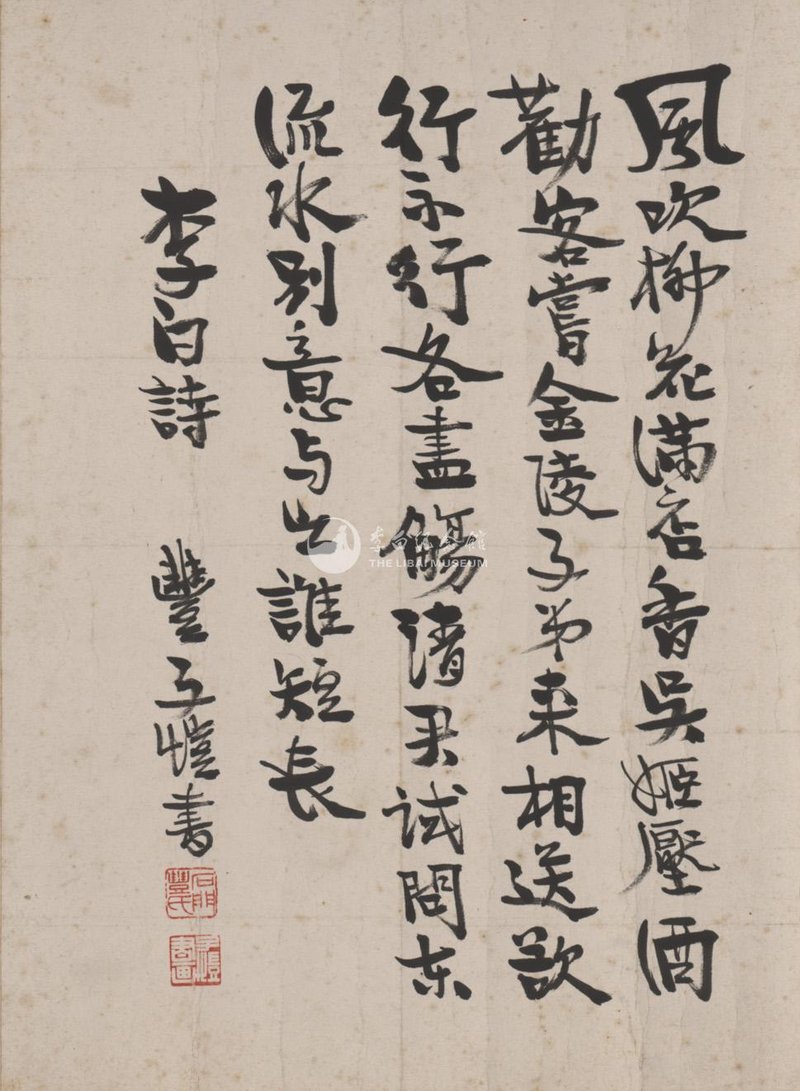 風吹柳花滿店香吳姬壓酒
勸客嘗金陵子弟來相送欲
行不行各盡觴請君試問東
流水別意与之誰短長
李白詩 豐子愷書
石門豐氏
子愷書画
李白纪念馆
THE LIBAI MUSEUM